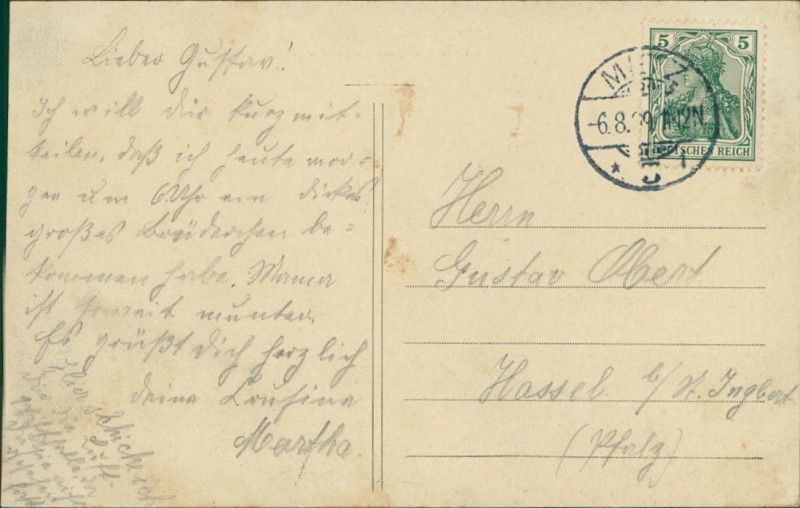 Lieber Gustav!
Ich will dir kurz mit-
teilen, daß ich heute mor-
gen um 6 Uhr ein dickes
großes Brüderchen be-
kommen habe. Mama
ist soweit munter.
Es grüßt Dich herzlich
deine Cousine
Martha.
schicke ich
die
Luft-
5 5
DEUTSCHES REICH
-6.8.09.11-12N.
Herrn
Gustav Obert
Hassel b/St. Ingbert
(Pfalz)